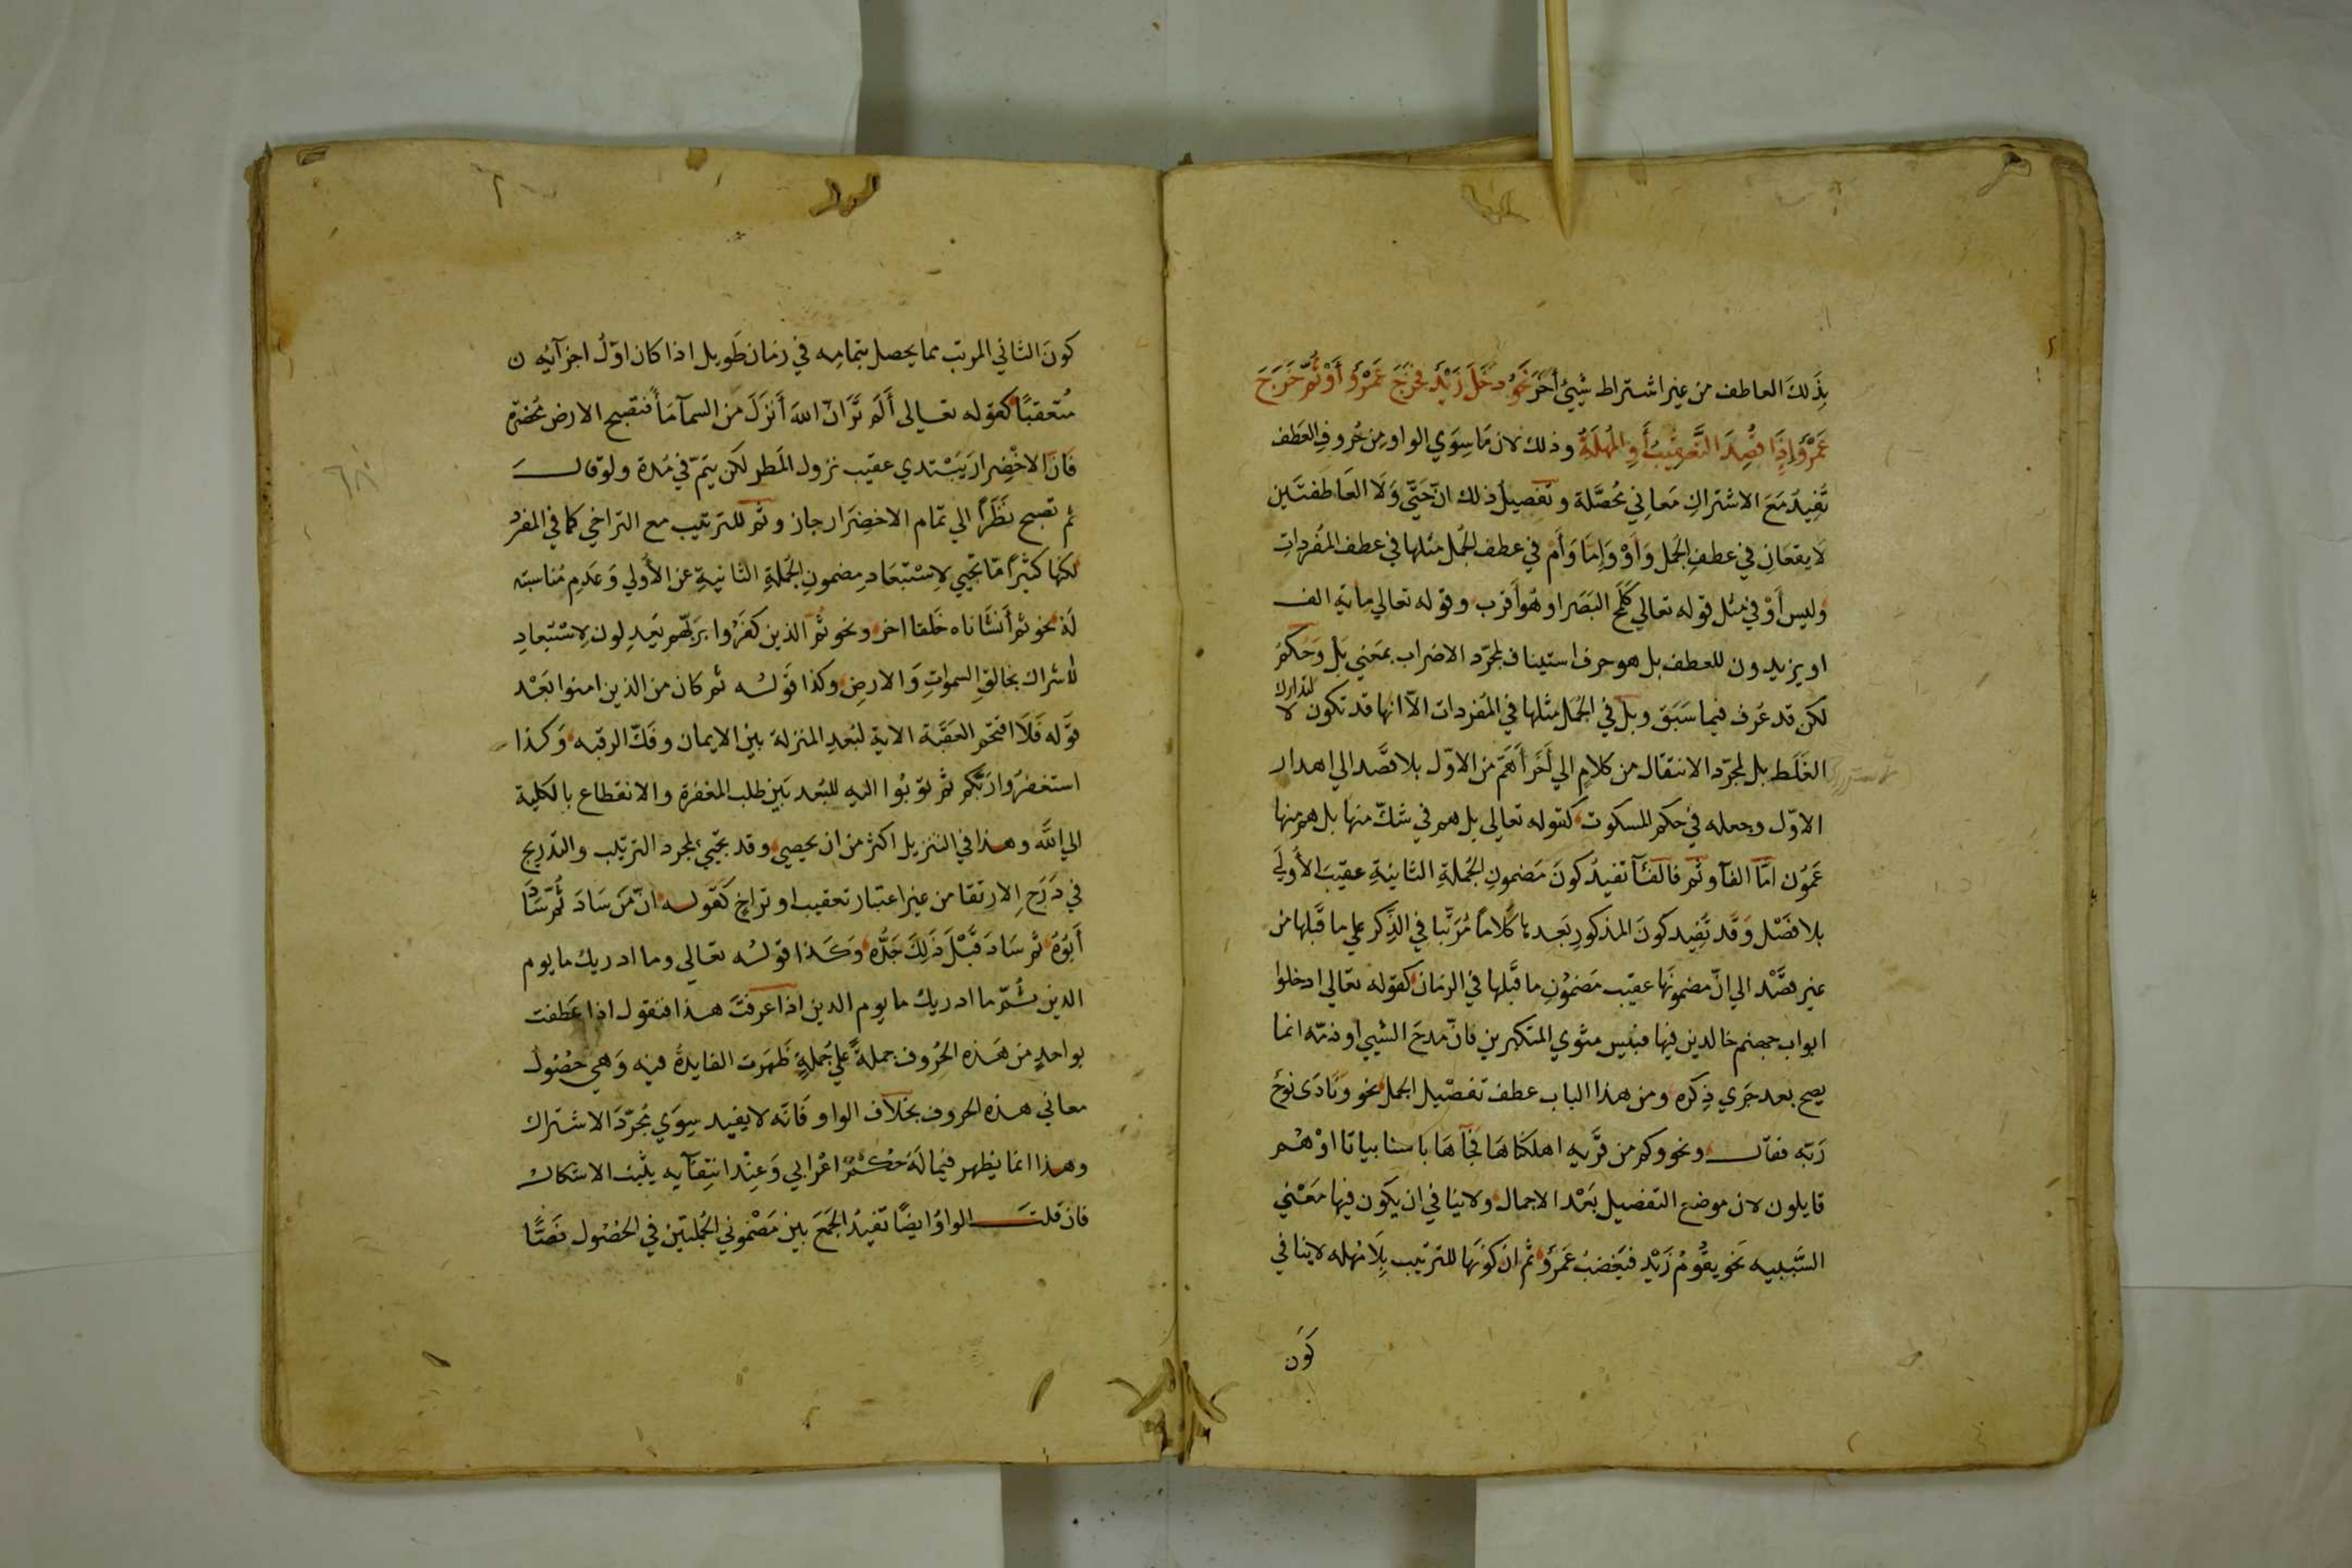 بِذَلِكَ العاطف من غير اشتراط شيئ أخَرَ نَحوُ دَخَلَ زَيْدٌ فخَرَجَ عَمْرٌو أَوْ ثُمَّ خَرَجَ
عَمْرٌو إِذَا قُصِدَ التَّعْقِيْبُ أَوِ المُهْلَةُ وذلك لان مَا سِوَي الواو مِن حُروفِ العَطف
تُفِيدُ مَعَ الاشتراكِ مَعاِني مُحَصَّلة وتفصيل ذلك انّ حَتّي وَلَا العَاطفتَين
لَا يقعَانِ في عطفِ الجُمل وَأَوْ وَإِمّا وَأَمْ في عطف الجُمل مثلها في عطف المُفرداتِ
وليس أَوْ في مثل قوله تعالي كَلَمْحِ البَصَر او هُوَ أَقرب وقوله تعالي ماية الف
او يزيدون للعطف بل هو حرف استيناف لمجرّد الاضراب بمَعني بَلْ وَحُكمُ
لكن قد عُرف فيما سَبَق وبل في الجُمَل مثلها في المُفردات الّا انها قد تكون لا لتدارك
الغَلَط بل لمجرّد الانتقال من كلامٍ الي أخَر أَهَمّ من الاوّل بلا قصَد الي اهدار
الاوّل وجعله في حكم المسكوت كقوله تعالي بل هم في شكّ منها بل هم منها
عَمُون امّا الفآ وثم فالفآء تفيدُ كونَ مَضمونِ الجُملةِ الثانيةِ عقيبَ الأُولَي
بلا فصَل وَقَد تُفِيد كونَ المذكورِ بَعدهَا كلامًا مُرَتّبا في الذِّكر علي ما قبَلها من
غير قصَد الي انّ مضمونَها عقيب مَضمُونِ ما قبَلها في الزمَان كقوله تعالي ادخلوا
ابواب جهنم خالدين فيها فبئيس مثوي المتكبرين فانّ مَدحَ الشيي أو ذمّه انما
يصح بعد جَري ذِكره ومن هذا الباب عطف تفصْيل الجمل نحو وَنَادَى نوحٌ
رَبّه فقال ونحو وكم من قَريه اهلكناهَا فجَآهَا باسنا بياتا اوْ هُم
قايلون لان موضع التفصيل بَعْد الاجمال ولا ينافي ان يكون فيها مَعْني
السَّبَبيه نَحو يقُومُ زَيْد فيَغضبُ عَمرٌو ثم انّ كونَها للترتيب بِلَا مُهله لا ينافي
كَوْن
كونَ الثاني المرتب مما يحصل بتمامِه في زمَان طَويل اذا كان اوّلُ اجزآئِه
مُتعقبًا كقوله تعالي أَلَم تَرَ أنّ اللهَ أَنزَلَ من السمآ مَأً فتصبح الارض مُخضَرة
فانّ الاخْضِرارَ يَبْتدي عقيب نزول المَطر لكن يَتمّ في مُدة ولو قال
ثم تصبح نَظَرًا الي تمّام الاخضِرَار جاز وثُمَّ للترتيب مع التراخي كما في المفرد
لكنها كَثيرًا مّا تجيي لاسْتبْعَادِ مضمونِ الجُملةِ الثانيةِ عن الأُولي وَعَدمِ مُناسبته
لَهُ نحو ثم أَنشأناه خَلقا اخر ونحو ثُمَّ الذين كفَرُوا برَبّهم يَعدِلون لاسْتِبْعادِ
الاشراك بخالقِ السموٰاتِ وَالارضِ وكذا قَولُه ثم كان من الذين امنوا بَعْد
قوَله فَلَا اقتحَم العَقبَة الاية لبُعدِ المنزلة بين الايمان وفَكّ الرقبه وَكذا
استغفرُوا رَبّكم ثم توبُوا اليه للبُعد بَين طلب المغفرة والانقطاع بالكلية
الي اللَّه وهذا في التنزيل اكثر من ان يحصي وقد يجيئ لمجرد الترتيب والتدريج
في دَرَجِ الارتقا من غير اعتبار تعقيب او تراخٍ كقَوله انّ مَن سَادَ ثُمّ سَادَ
أَبُوهُ ثم سَادَ قَبْلَ ذَلِكَ جَدُّه وَكَذا قولُه تعَالي وما ادريك ما يوم
الدين ثُمّ ما ادريك ما يوم الدين اذا عرفتَ هذا فنقول اذا عَطفت
بواحدٍ من هَذه الحُروف جملةً علي جُملةٍ ظَهَرت الفايدةُ فيه وَهي حصُول
معاني هذه الحروف بخلاف الواو فَانّه لا يفيد سِوَي مُجرّد الاشتراك
وهذا انما يظهر فيما لَهُ حُكْمٌ اعْرابي وَعِنْد انتِفآيه يثبت الاشكال
فان قلتَ الواوُ ايضًا تفيدُ الجَمَعَ بين مَضْموني الجُملتَين في الحُصُول نَصًّا